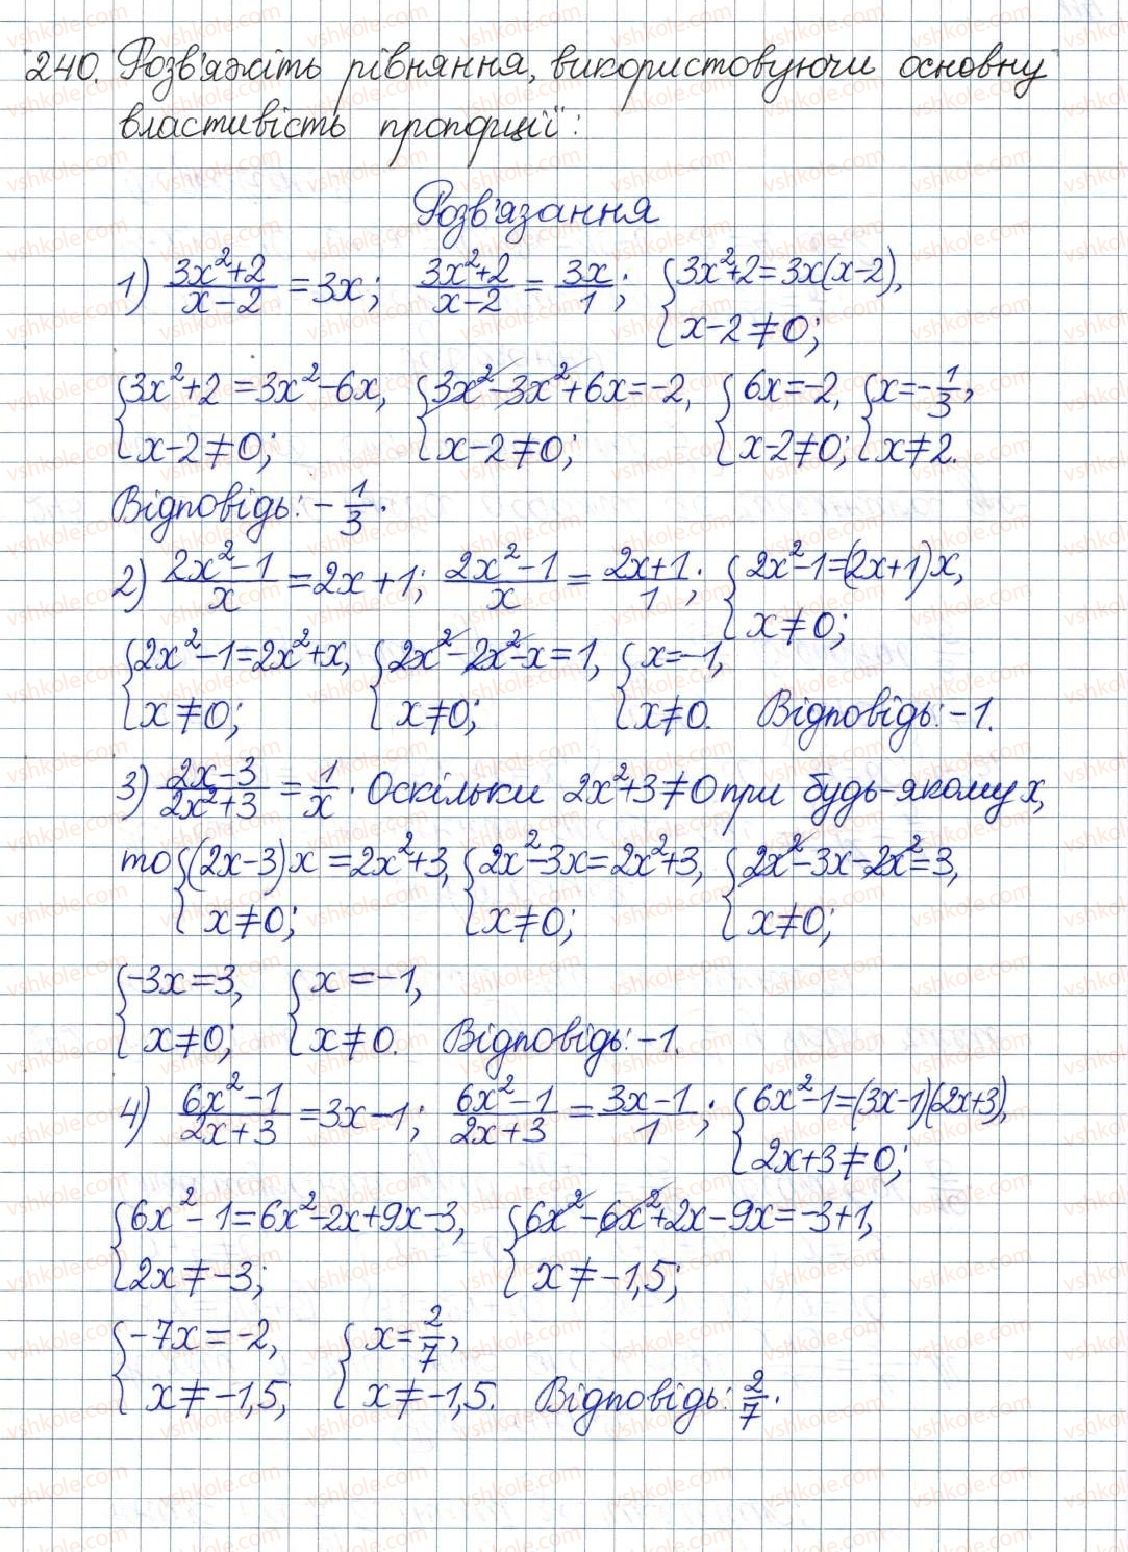 240. Розв'яжіть рівняння, використовуючи основну
властивість пропорції:
Розв'язання
1) (3x²+2)/(x-2) = 3x; (3x²+2)/(x-2) = 3x/1; {3x²+2=3x(x-2), x-2≠0;
{3x²+2=3x²-6x, x-2≠0; {3x²-3x²+6x=-2, x-2≠0; {6x=-2, x-2≠0; {x=-1/3, x≠2.
Відповідь: -1/3.
2) (2x²-1)/x = 2x+1; (2x²-1)/x = (2x+1)/1; {2x²-1=(2x+1)x, x≠0;
{2x²-1=2x²+x, x≠0; {2x²-2x²-x=1, x≠0; {x=-1, x≠0. Відповідь: -1.
3) (2x-3)/(2x²+3) = 1/x. Оскільки 2x²+3≠0 при будь-якому x,
то {(2x-3)x=2x²+3, x≠0; {2x²-3x=2x²+3, x≠0; {2x²-3x-2x²=3, x≠0;
{-3x=3, x≠0; {x=-1, x≠0. Відповідь: -1.
4) (6x²-1)/(2x+3) = 3x-1; (6x²-1)/(2x+3) = (3x-1)/1; {6x²-1=(3x-1)(2x+3), 2x+3≠0;
{6x²-1=6x²-2x+9x-3, 2x≠-3; {6x²-6x²+2x-9x=-3+1, x≠-1,5;
{-7x=-2, x≠-1,5; {x=2/7, x≠-1,5. Відповідь: 2/7.